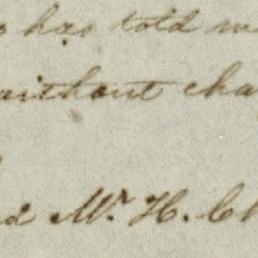 has told
without cha
Mr. H. Ch